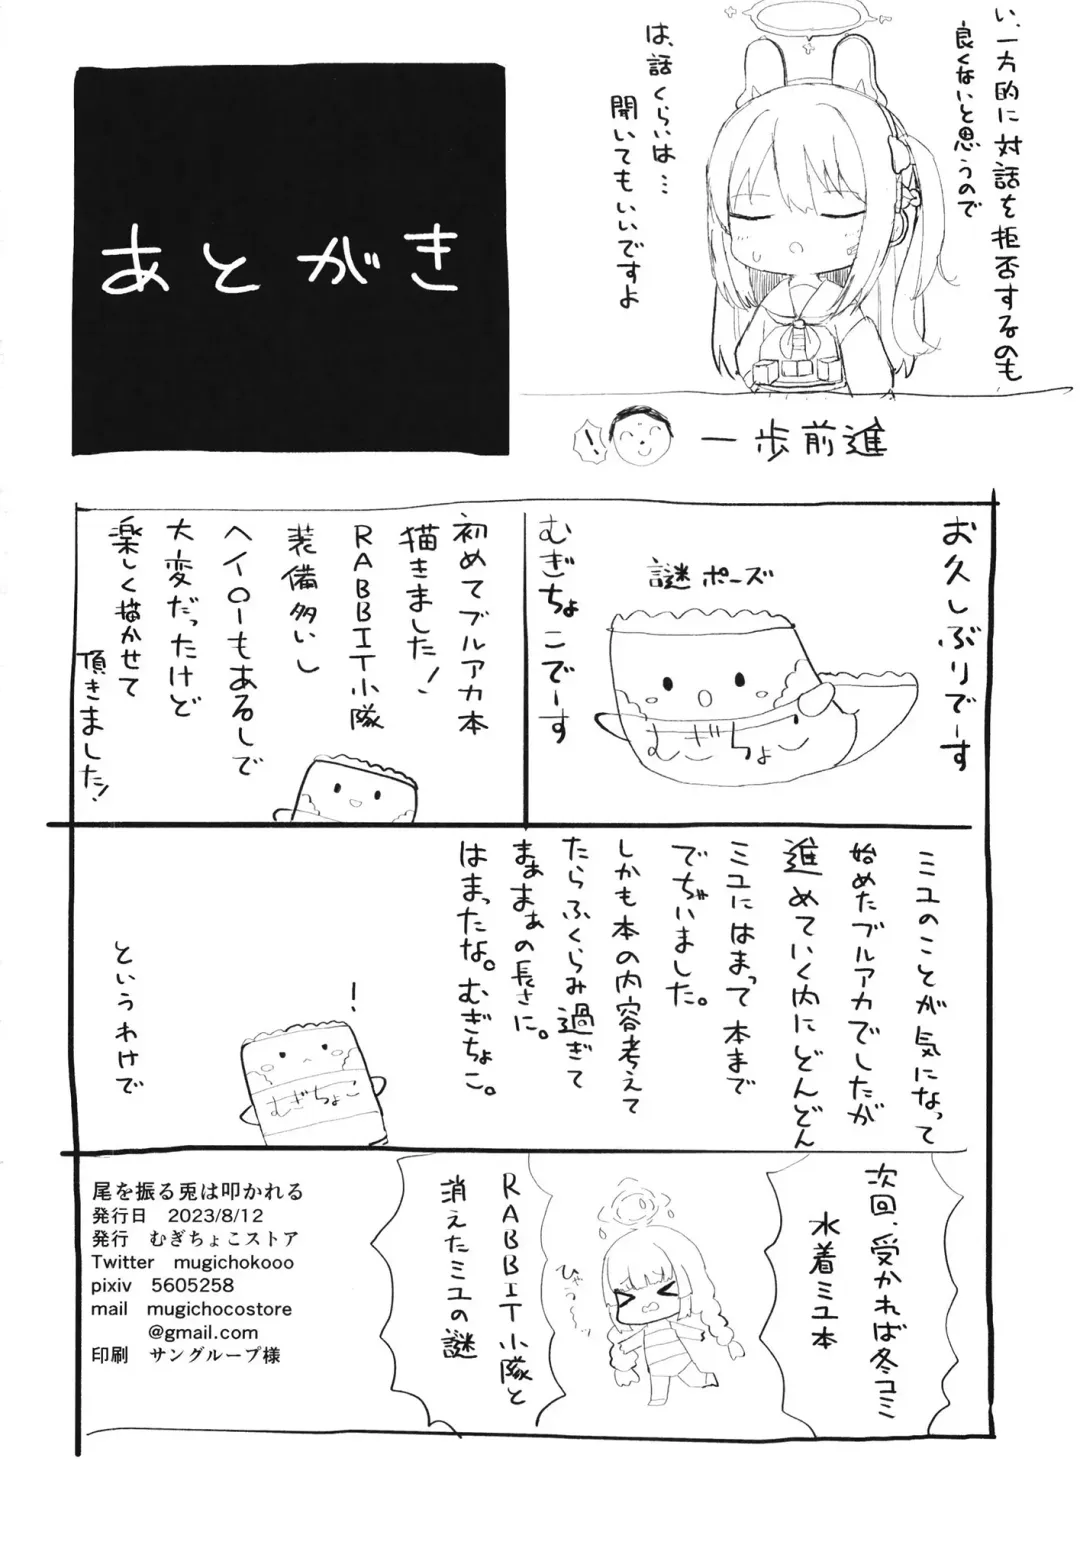 い、一方的に対話を拒否するのも
良くないと思うので
は、話くらいは…
聞いてもいいですよ
！
一歩前進
あとがき
お久しぶりでーす
謎ポーズ
むぎちょこ
むぎちょこでーす
初めてブルアカ本
描きました！
RABBIT小隊
装備多いし
ヘイローもあるしで
大変だったけど
楽しく描かせて
頂きました！
ミユのことが気になって
始めたブルアカでしたが
進めていく内にどんどん
ミユにはまって本まで
でぢいました。
しかも本の内容考えて
たらふくらみ過ぎて
まぁまぁの長さに。
はまったな。むぎちょこ。
！
むぎちょこ
というわけで
次回、受かれば冬コミ
水着ミユ本
ひゃう〜ッ
RABBIT小隊と
消えたミユの謎
尾を振る兎は叩かれる
発行日　2023/8/12
発行　むぎちょこストア
Twitter　mugichokooo
pixiv　5605258
mail　mugichocostore
@gmail.com
印刷　サングループ様